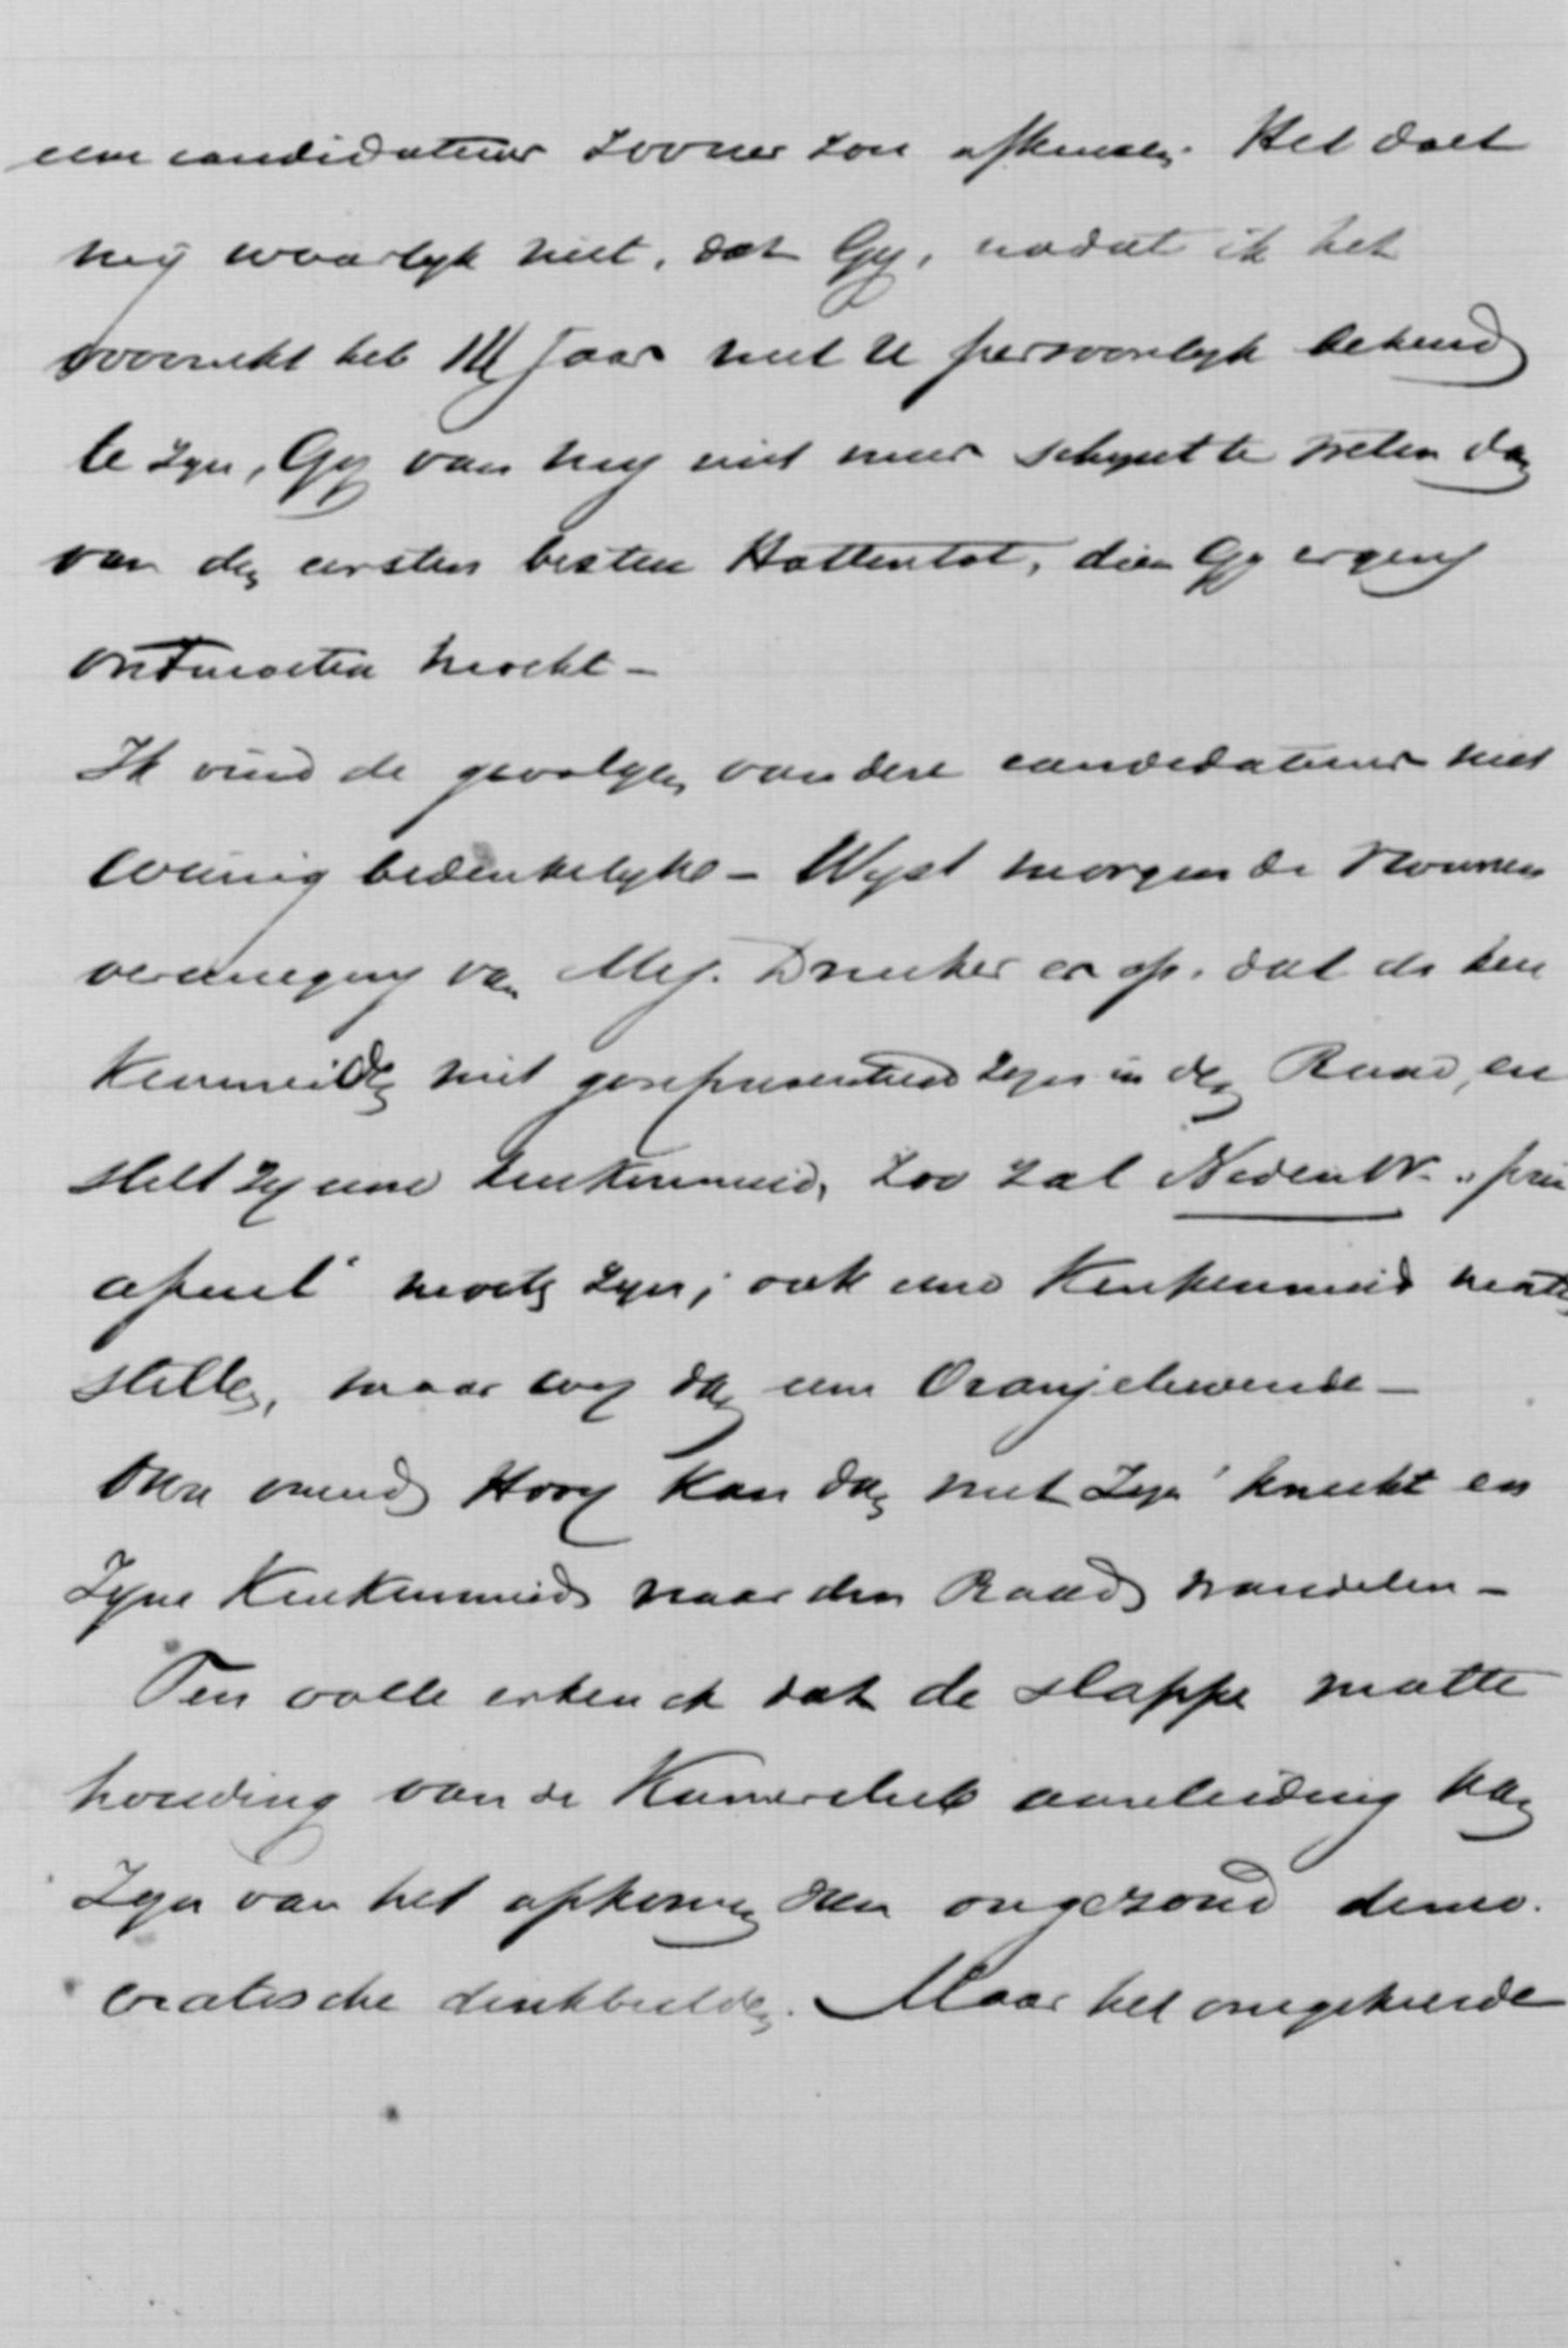 eene candidatuur zoomer zou afkeuren. Het doet
mij waarlyk niet, dat Gij, nadat ik het
voorrecht heb 1½ jaar met U persoonlyk bekend
te zyn, Gy van my niet meer schynt te weten dan
van den eersten besten Hottentot, dien Gy ergens
ontmoeten mocht –
Ik vind de gevolgen van deze candidatuur niet
weinig bedenkelyke – Wyst morgen de Vrouwen
vereeniging van Mej. Drucker er op, dat de keu
kenmeiden niet gerepresenteerd zyn in den Raad, en
stelt zy eene keukenmeid, zoo zal Nederl W. "prin
cipieel" moeten zyn; ook eene Keukenmeid moeten
stellen, maar wey dan eene Oranjelievende –
Onze vriend Hovy kan dan met zyn knecht en
zyne Keukenmeid naar den Raad wandelen –
Ten volle erken ik dat de slappe matte
houding van de Kamerclub aanleiding kan
zyn van het opkomen van ongezond demo-
cratische denkbeelden. Maar het omgekeerde